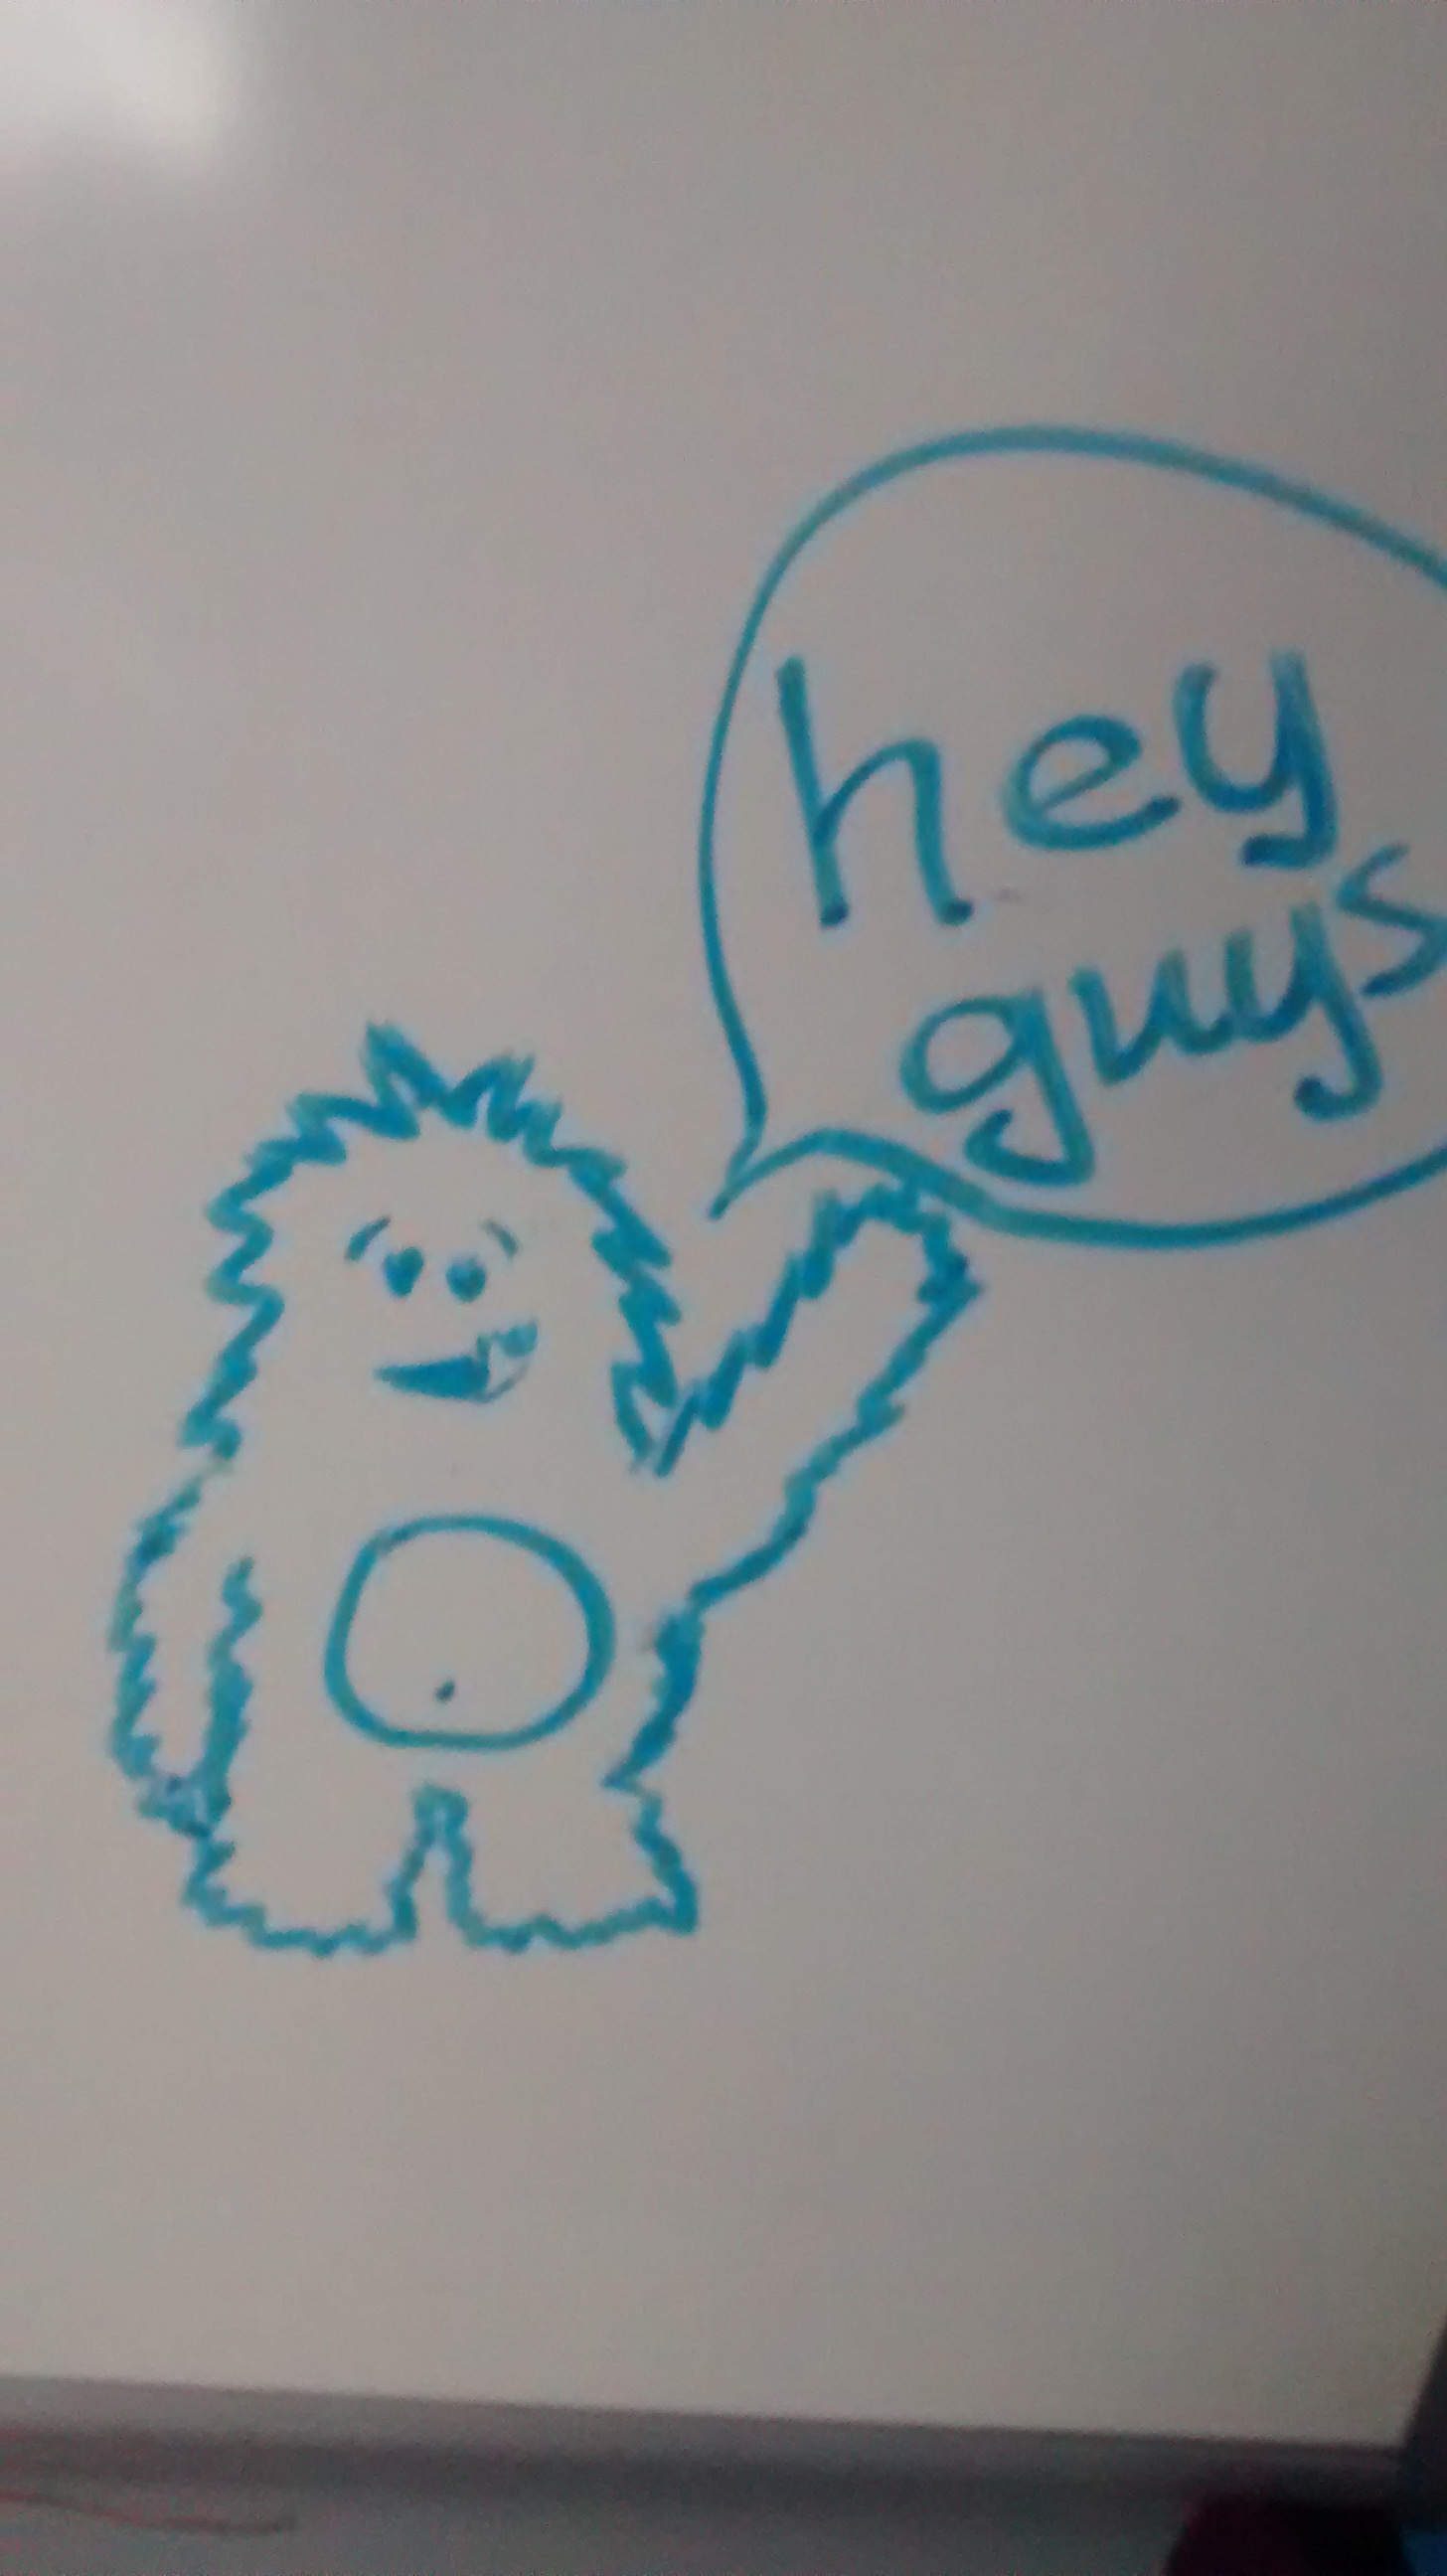 hey
guys